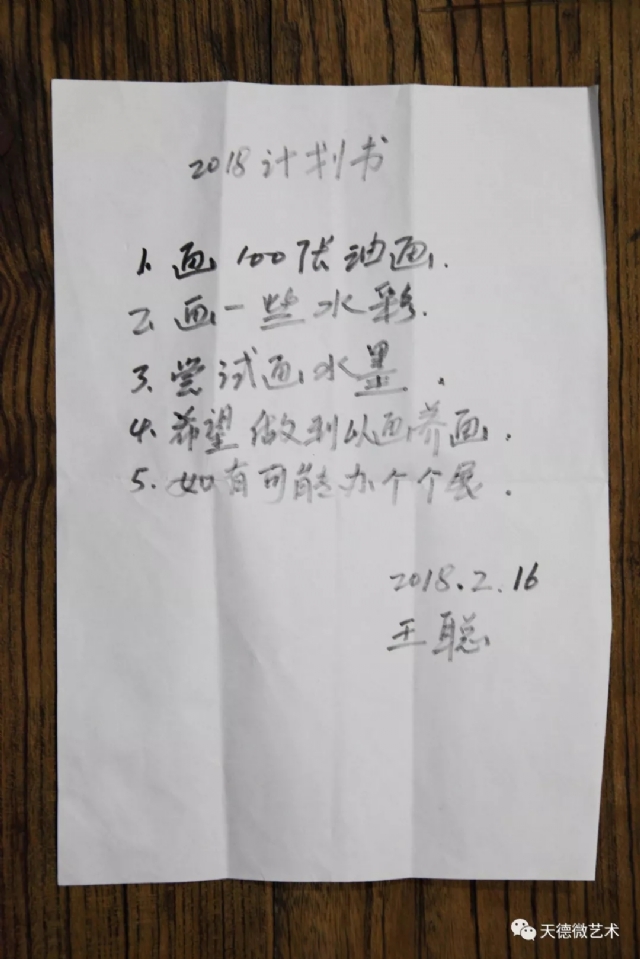 2018计划书
1、画100张油画.
2、画一些水彩.
3、尝试画水墨.
4、希望做到以画养画.
5、如有可能办个个展.
2018.2.16
王聪
天德微艺术